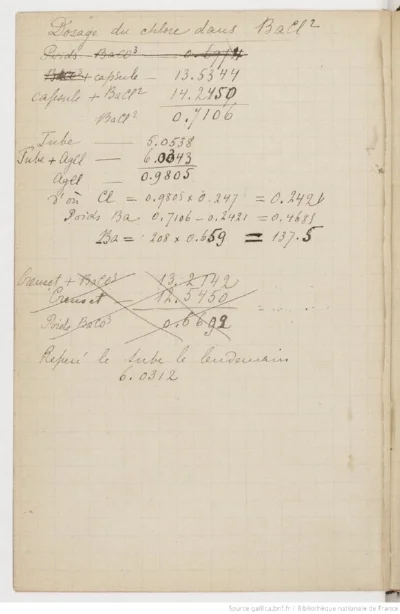 Dosage du chlore dans BaCl²
Poids BaCO³
BaCl² + capsule — 13.5344
capsule + BaCl² 14.2450
BaCl² 0.7106
Tube — 5.0538
Tube + AgCl — 6.0343
AgCl 0.9805
D'où Cl = 0.9805 x 0.247 = 0.2421
Poids Ba 0.7106 - 0.2421 = 0.4685
Ba = 208 x 0.659 = 137.5
Creuset + BaCO³ 13.2142
Creuset — 12.5450
Poids BaCO³ 0.6692
Repesé le tube le lendemain
6.0312
Source gallica.bnf.fr / Bibliothèque nationale de France